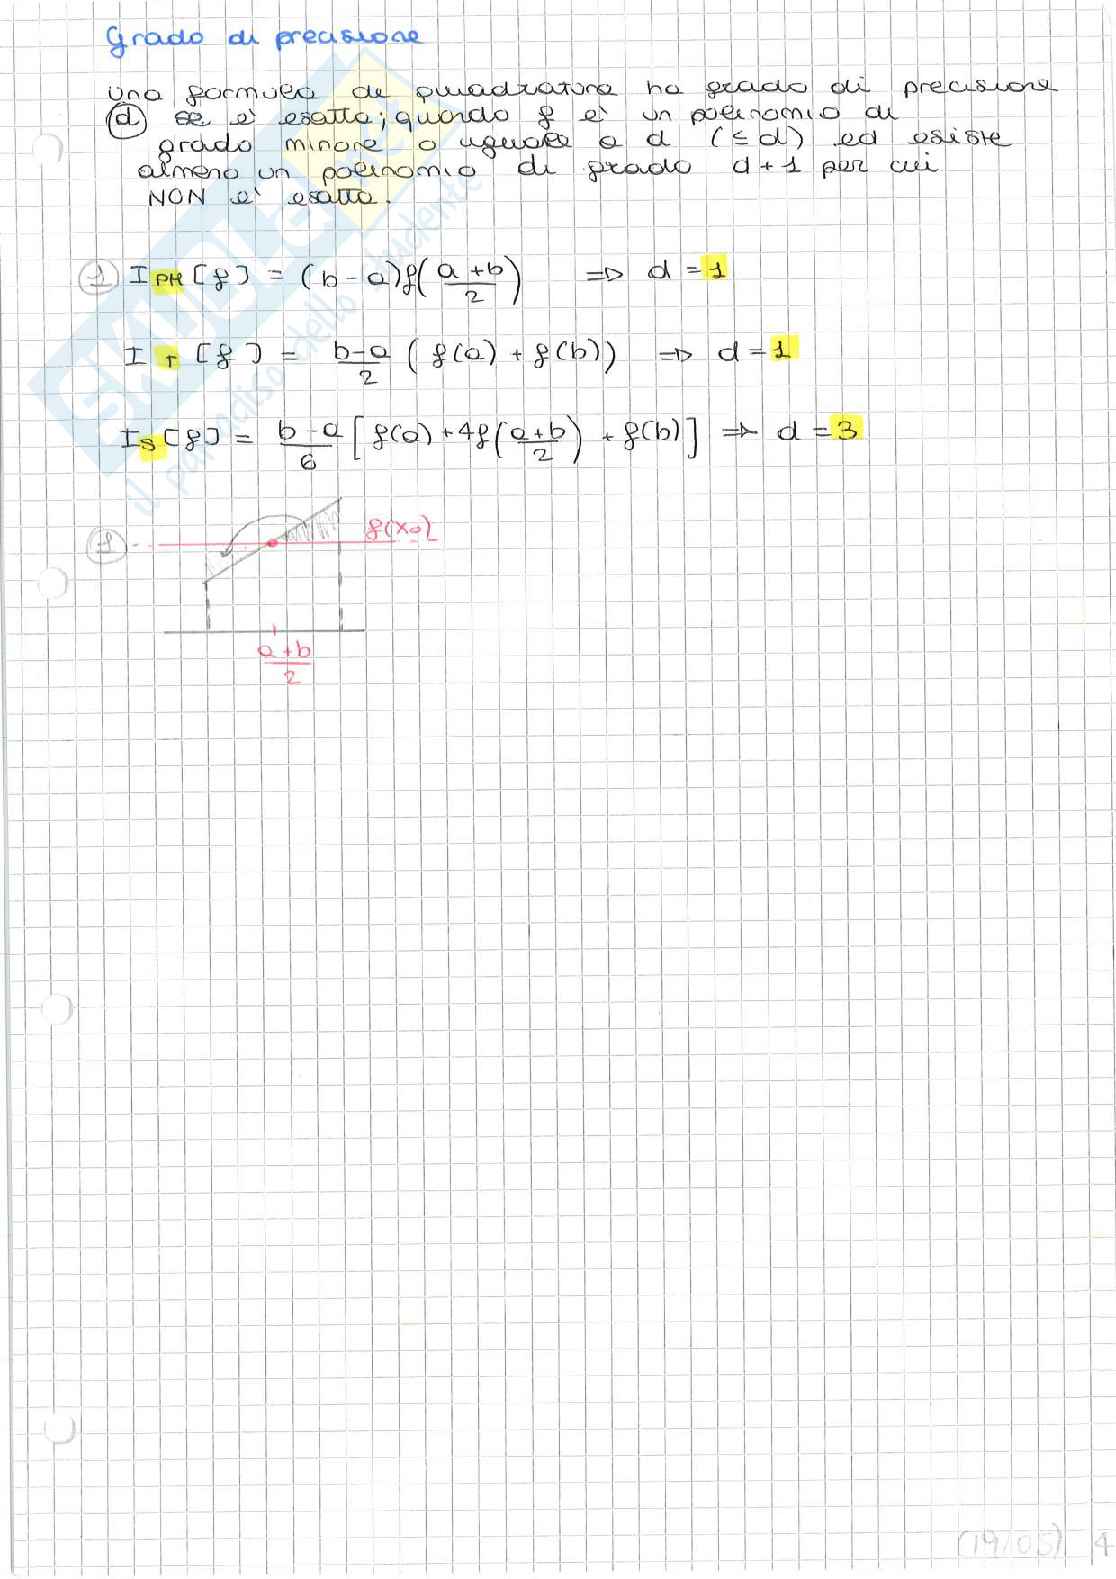 Grado di precisione
una formula di quadratura ha grado di precisione
d se è esatta; quando f è un polinomio di
grado minore o uguale a d (≤d) ed esiste
almeno un polinomio di grado d+1 per cui
NON è esatta.
1 I PM [f] = (b-a)f(a+b/2) => d = 1
I T [f] = b-a/2 (f(a) + f(b)) => d = 1
I S [f] = b-a/6 [f(a) + 4f(a+b/2) + f(b)] => d = 3
1 f(x0)
a+b
2
(19/05) 4
il paradiso dello studente